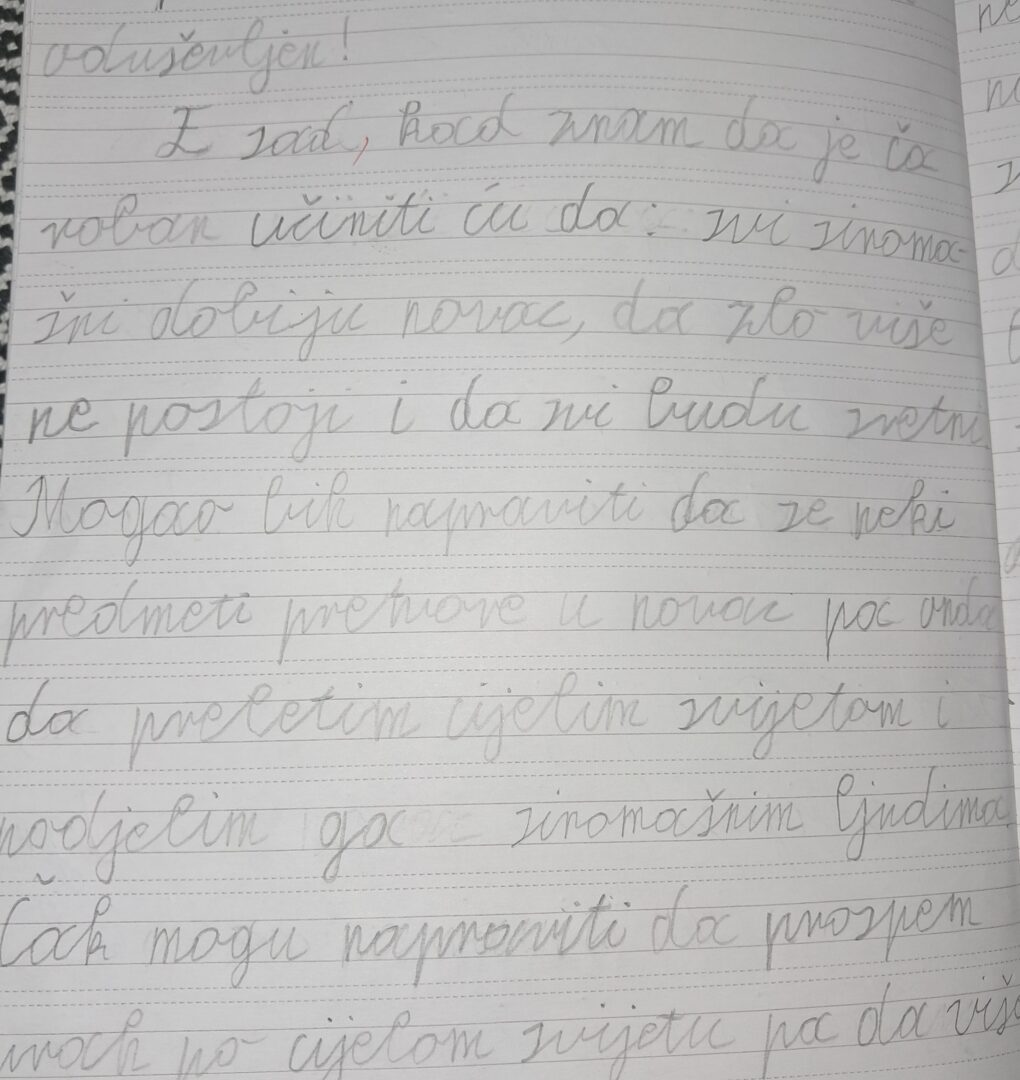 oduševljen!
I sad, kad znam da je ča
roban učiniti ću da: svi siroma-
šni dobiju novac, da zlo više
ne postoji i da svi budu sretni
Mogao bih napraviti da se neki
predmeti pretvore u novac pa onda
da preletim cijelim svijetom i
podjelim ga siromašnim ljudima
Čak mogu napraviti da prospem
prah po cijelom svijetu pa da više